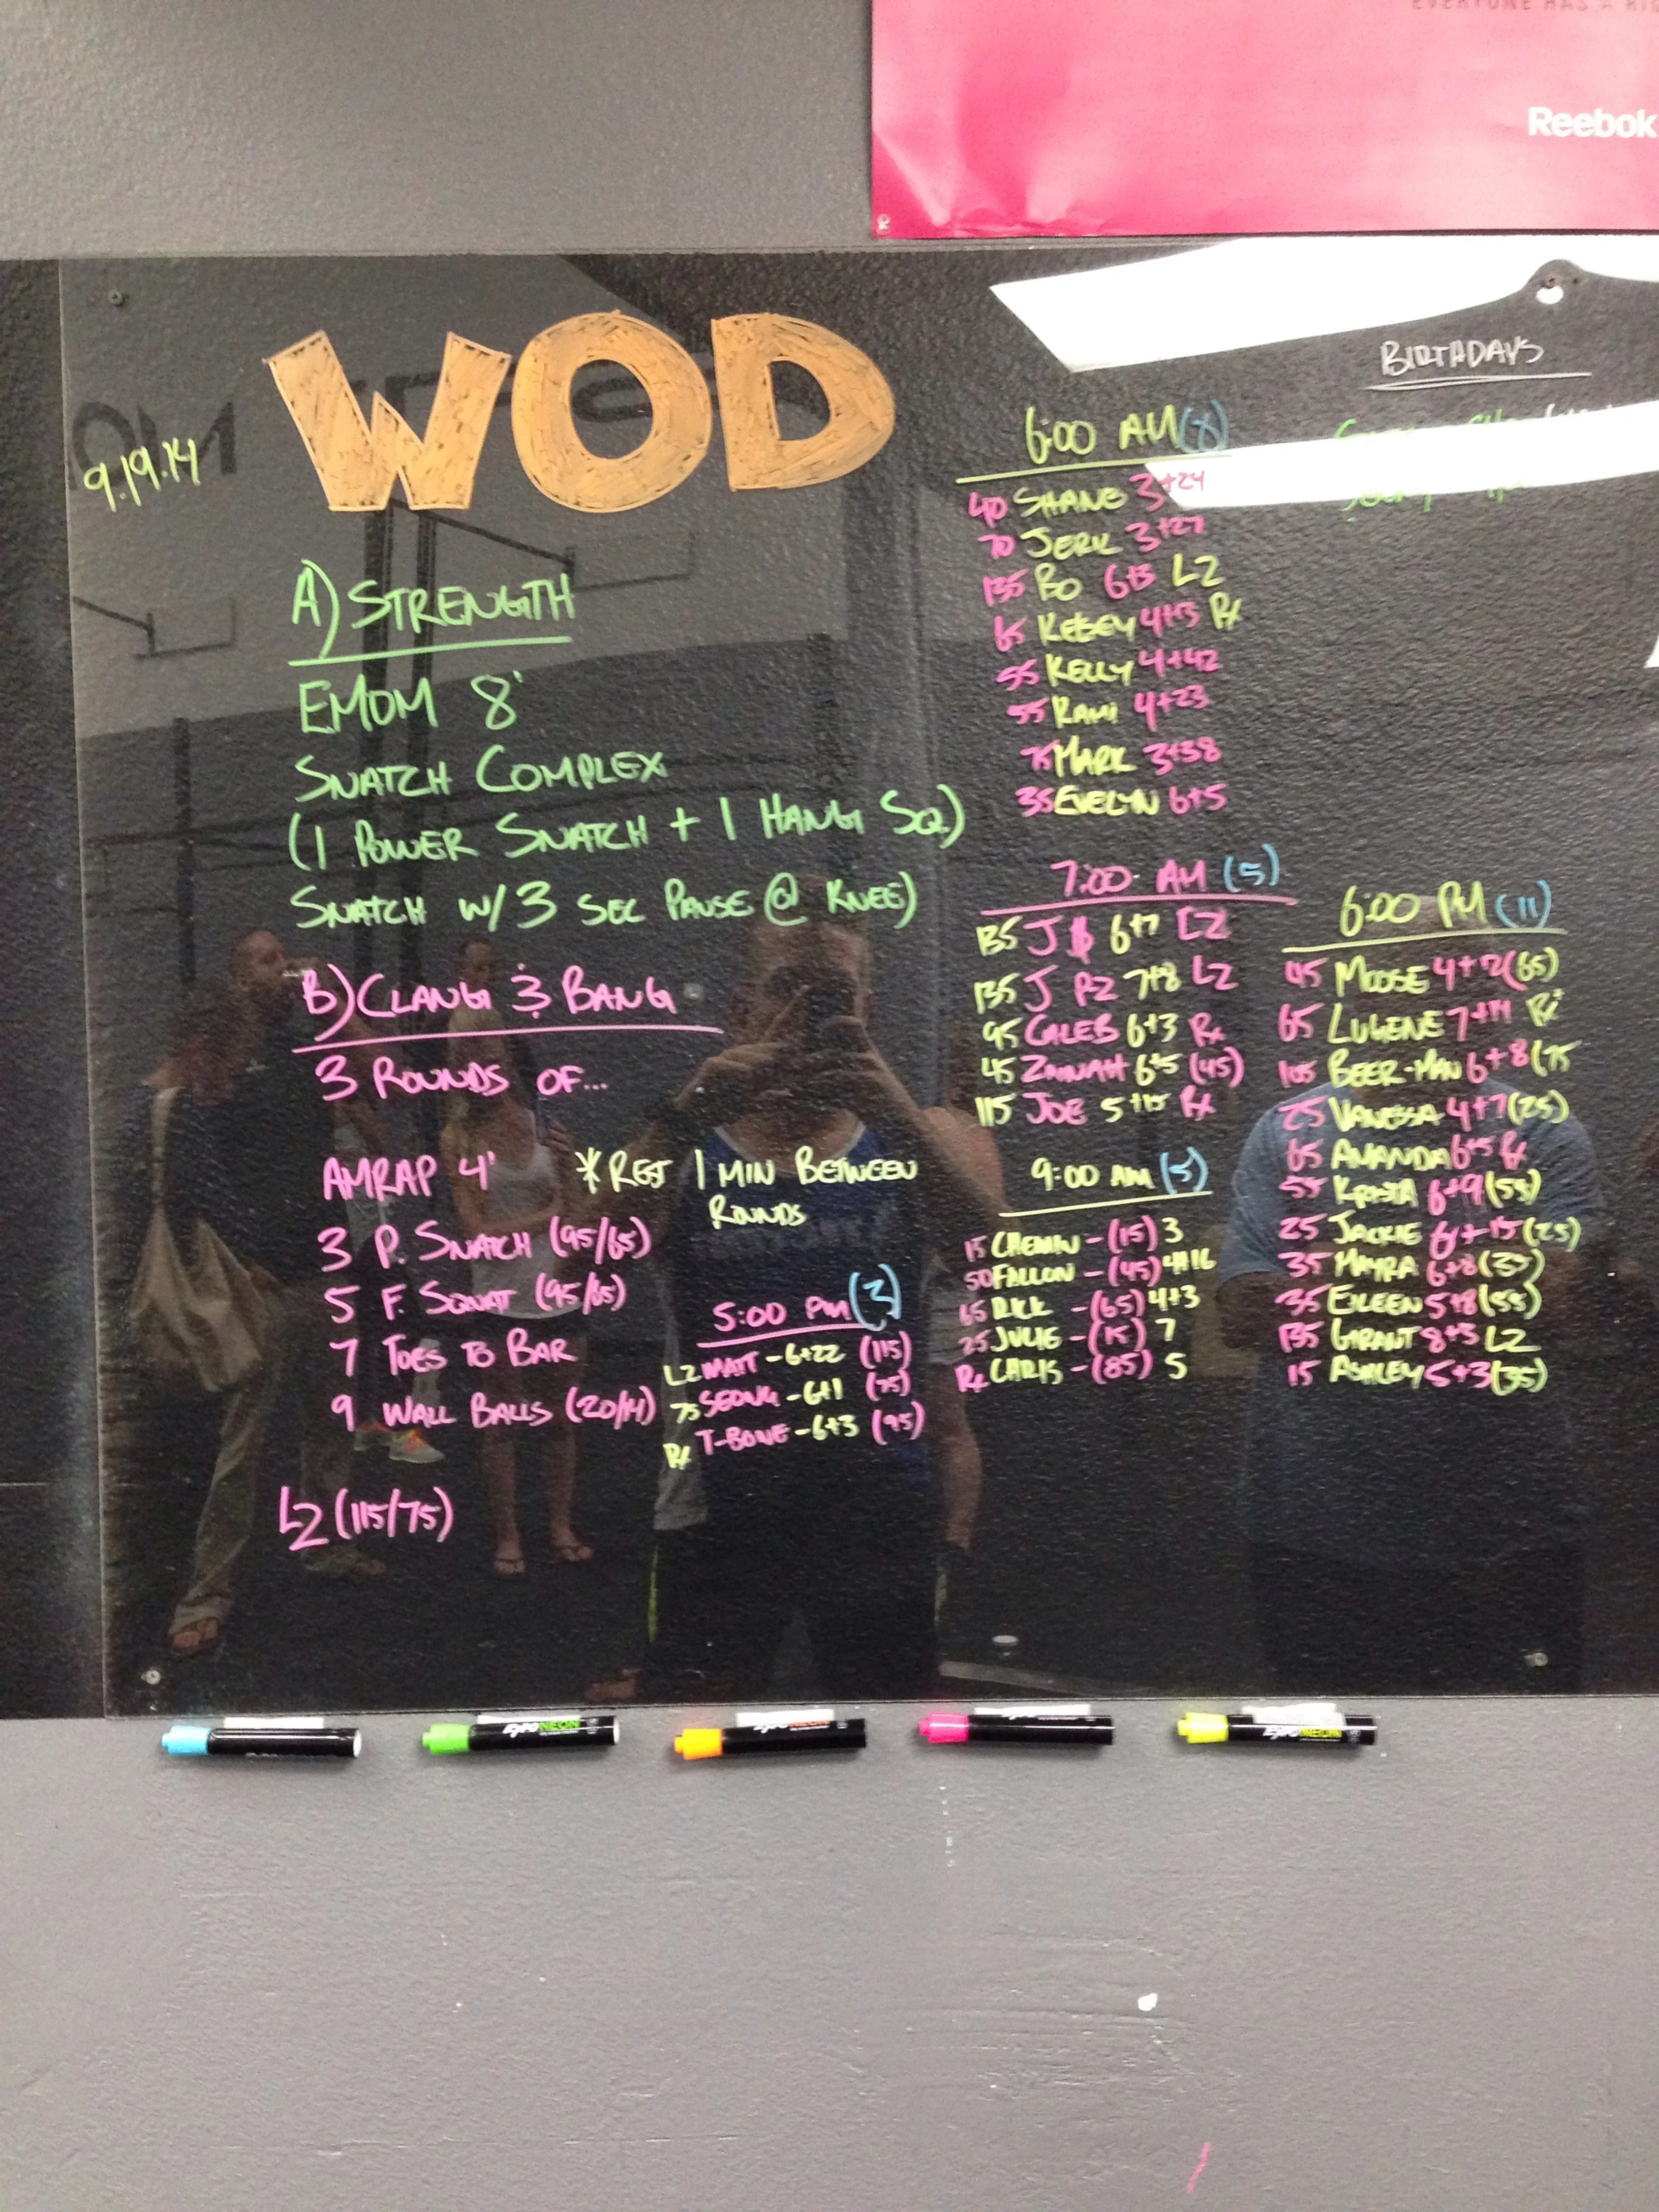 EVERYONE HAS A
Reebok
WOD
9.19.14
A) STRENGTH
EMOM 8'
SNATCH COMPLEX
(1 POWER SNATCH + 1 HANG SQ)
SNATCH W/ 3 SEC PAUSE @ KNEE)
B) CLANG & BANG
3 ROUNDS OF...
AMRAP 4'
*REST 1 MIN BETWEEN
ROUNDS
3 P. SNATCH (95/65)
5 F. SQUAT (95/65)
7 TOES TO BAR
9 WALL BALLS (20/14)
L2 (115/75)
5:00 PM (3)
L2 MATT - 6+22 (115)
75 SEONG - 6+1 (75)
Rx T-BONE - 6+3 (95)
6:00 AM (8)
40 SHANE 3+24
70 JERK 3+27
135 BO 6+3 L2
65 KELSEY 4+13 Rx
55 KELLY 4+42
55 RAMI 4+23
75 MARK 3+38
35 EVELYN 6+5
7:00 AM (5)
135 J $ 6+7 L2
135 J PZ 7+8 L2
95 CALEB 6+3 Rx
45 ZAINAH 6+5 (45)
115 JOE 5+15 Rx
9:00 AM (5)
15 CHEMIN - (15) 3
50 FALLON - (45) 4+16
65 RICK - (65) 4+3
25 JULIE - (15) 7
Rx CHRIS - (85) 5
BIRTHDAYS
6:00 PM (11)
95 MOOSE 4+2 (65)
65 LUGENE 7+14 Rx
105 BEER-MAN 6+8 (75
25 VANESSA 4+7 (25)
65 AMANDA 6+5 Rx
55 KRISTA 6+9 (55)
25 JACKIE 6+15 (25)
35 MAYRA 6+8 (35)
35 EILEEN 5+8 (55)
135 GRANT 8+5 L2
15 ASHLEY 5+3 (35)
EXPO NEON
EXPO NEON
EXPO NEON